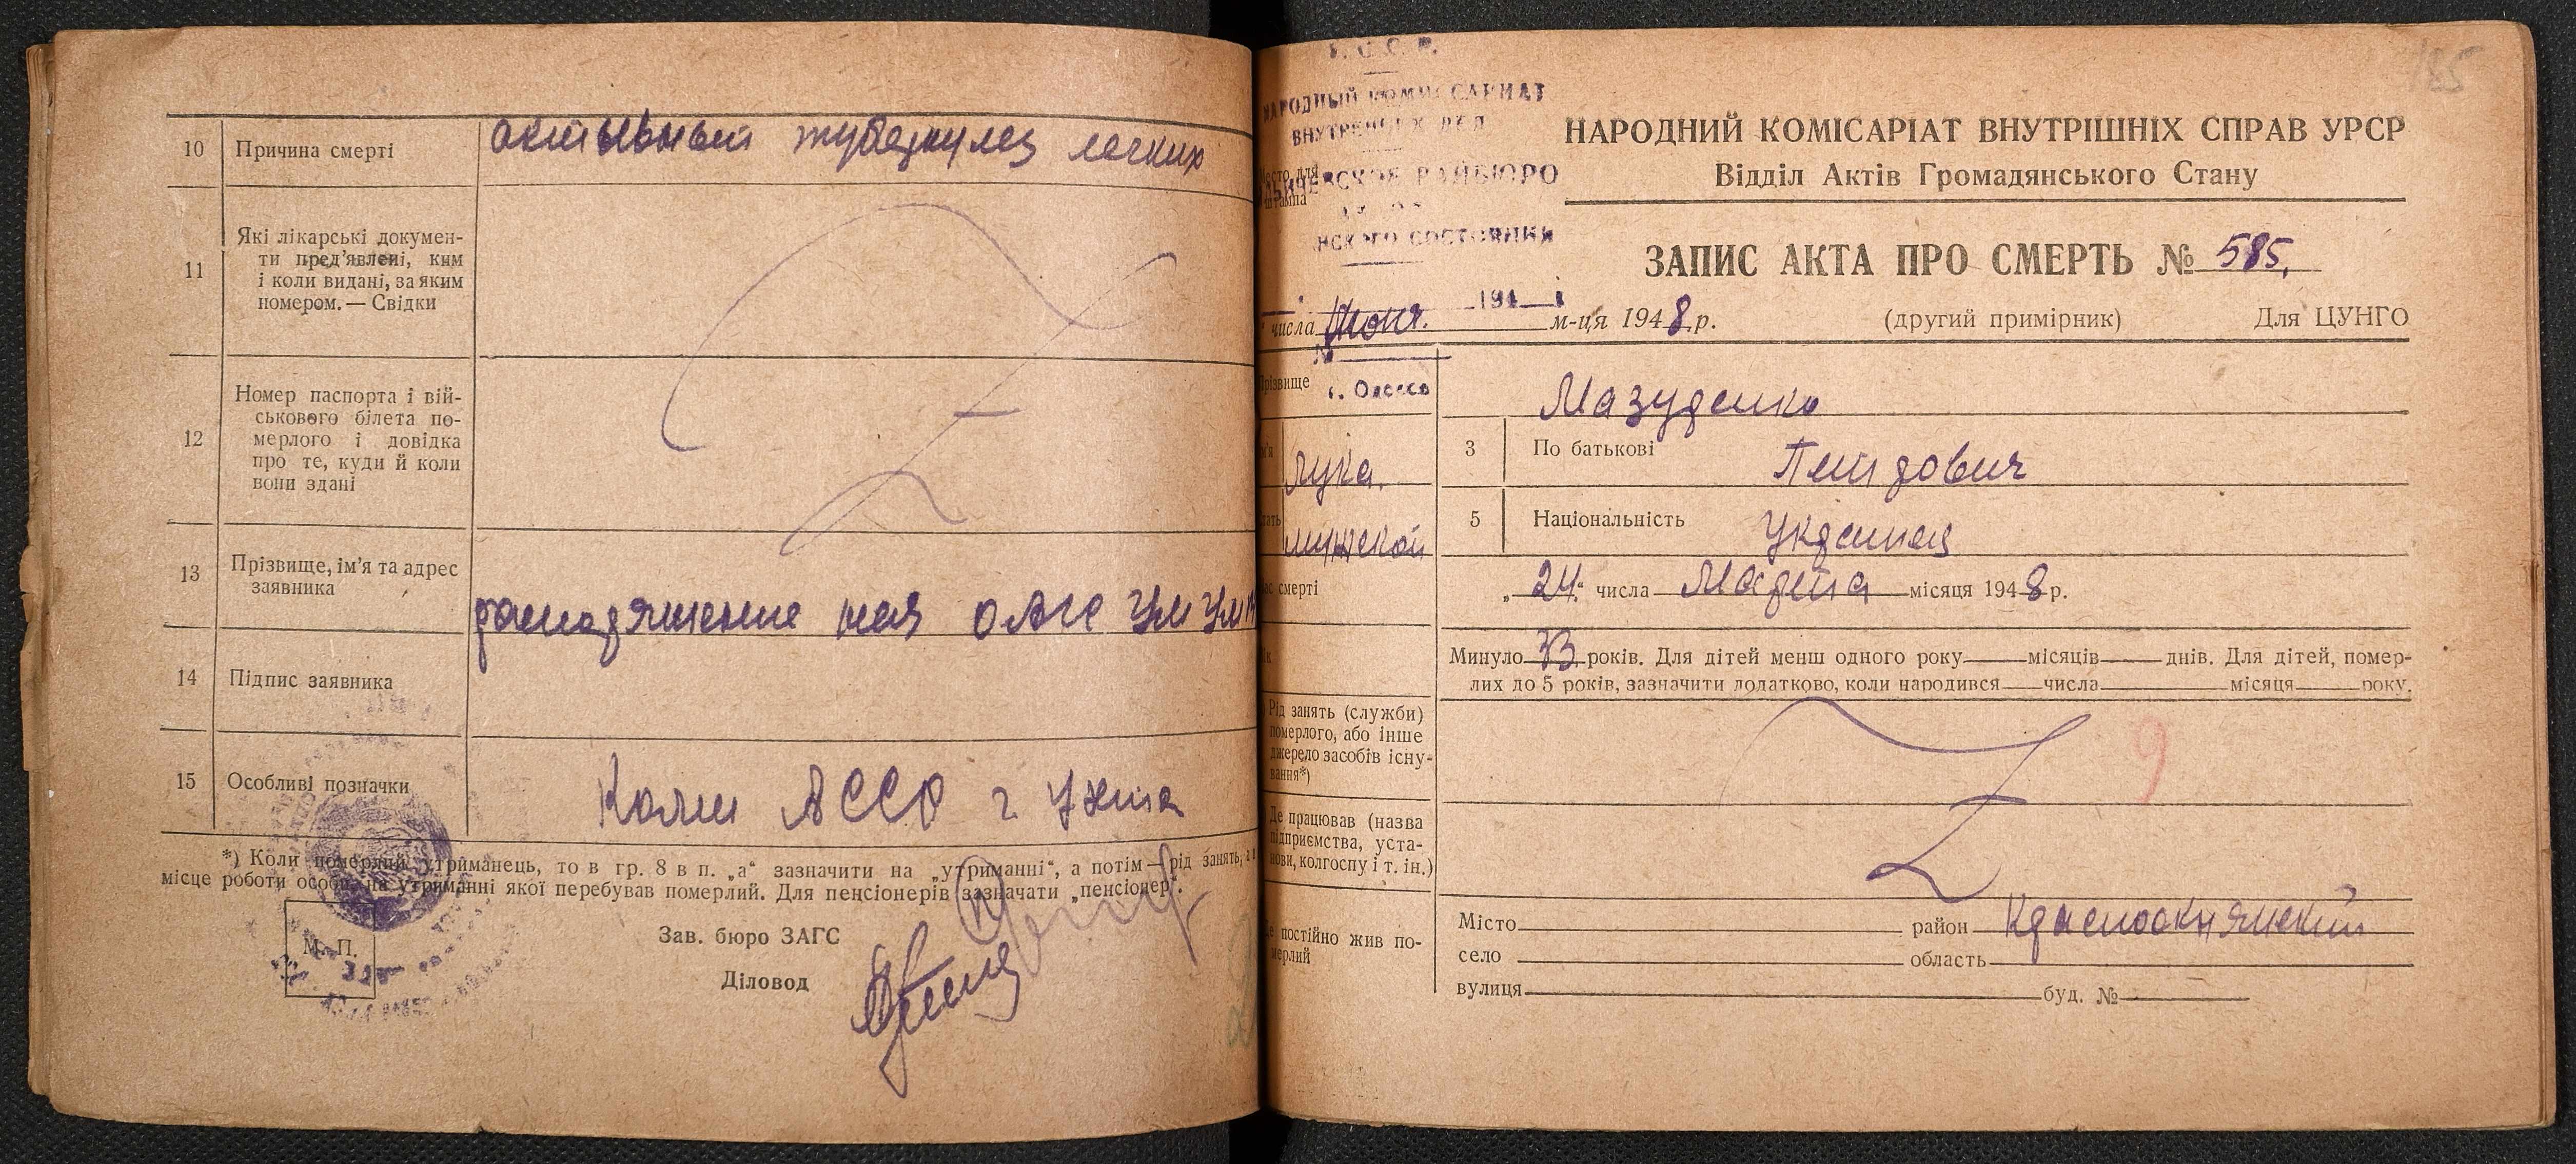 10 Причина смерти активный туберкулез легких
11 Які лікарські докумен-
ти пред’явлені, ким
і коли видані, за яким
номером. — Свідки
12 Номер паспорта і вій-
ськового білета по-
мерлого і довідка
про те, куди й коли
вони здані
13 Прізвище, ім’я та адрес
заявника
нач ОАГС
14 Підпис заявника
15 Особливі позначки Коми АССР г Ухта
*) Коли померлий утриманець, то в гр. 8 в п. „а“ зазначити на „утриманні“, а потім — рід занять,
місце роботи особи, на утриманні якої перебував померлий. Для пенсіонерів зазначати „пенсіонер“.
М. П.
Зав. бюро ЗАГС
Діловод
185
НАРОДНЫЙ КОМИССАРИАТ
ВНУТРЕННИХ ДЕЛ
Место для
штампа
РАЙБЮРО
СОСТОЯНИЯ
194
№
г. Одесса
НАРОДНИЙ КОМІСАРІАТ ВНУТРІШНІХ СПРАВ УРСР
Відділ Актів Громадянського Стану
ЗАПИС АКТА ПРО СМЕРТЬ № 585.
числа Июня. м-ця 1948 р. (другий примірник) Для ЦУНГО
Прізвище Мазуренко
Лука. 3 По батькові Петрович
мужской 5 Національність Украинец
смерті „24“ числа Марта місяця 1948 р.
Минуло 33 років. Для дітей менш одного року місяців днів. Для дітей, помер-
лих до 5 років, зазначити додатково, коли народився числа місяця року.
Рід занять (служби)
померлого, або інше
джерело засобів існу-
вання*)
9
Де працював (назва
підприємства, уста-
нови, колгоспу і т. ін.)
постійно жив по-
мерлий
Місто район Красноокнянский
село область
вулиця буд. №